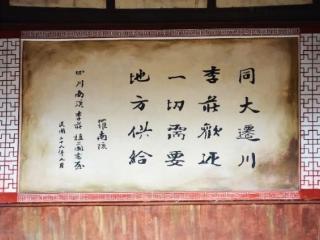 同大遷川
李莊歡迎
一切需要
地方供給
羅南陔
四川南溪李莊植蘭書屋
民國二十八年月